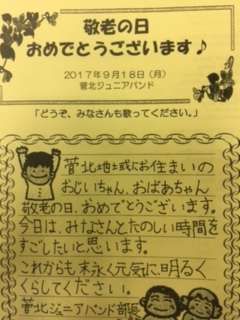 敬老の日
おめでとうございます♪
2017年9月18日(月)
菅北ジュニアバンド
「どうぞ、みなさんも歌ってください。」
菅北地域にお住まいの
おじいちゃん、おばあちゃん
敬老の日、おめでとうございます。
今日は、みなさんとたのしい時間を
すごしたいと思います。
これからも末永く元気に明るく
くらしてください。
菅北ジュニアバンド部長